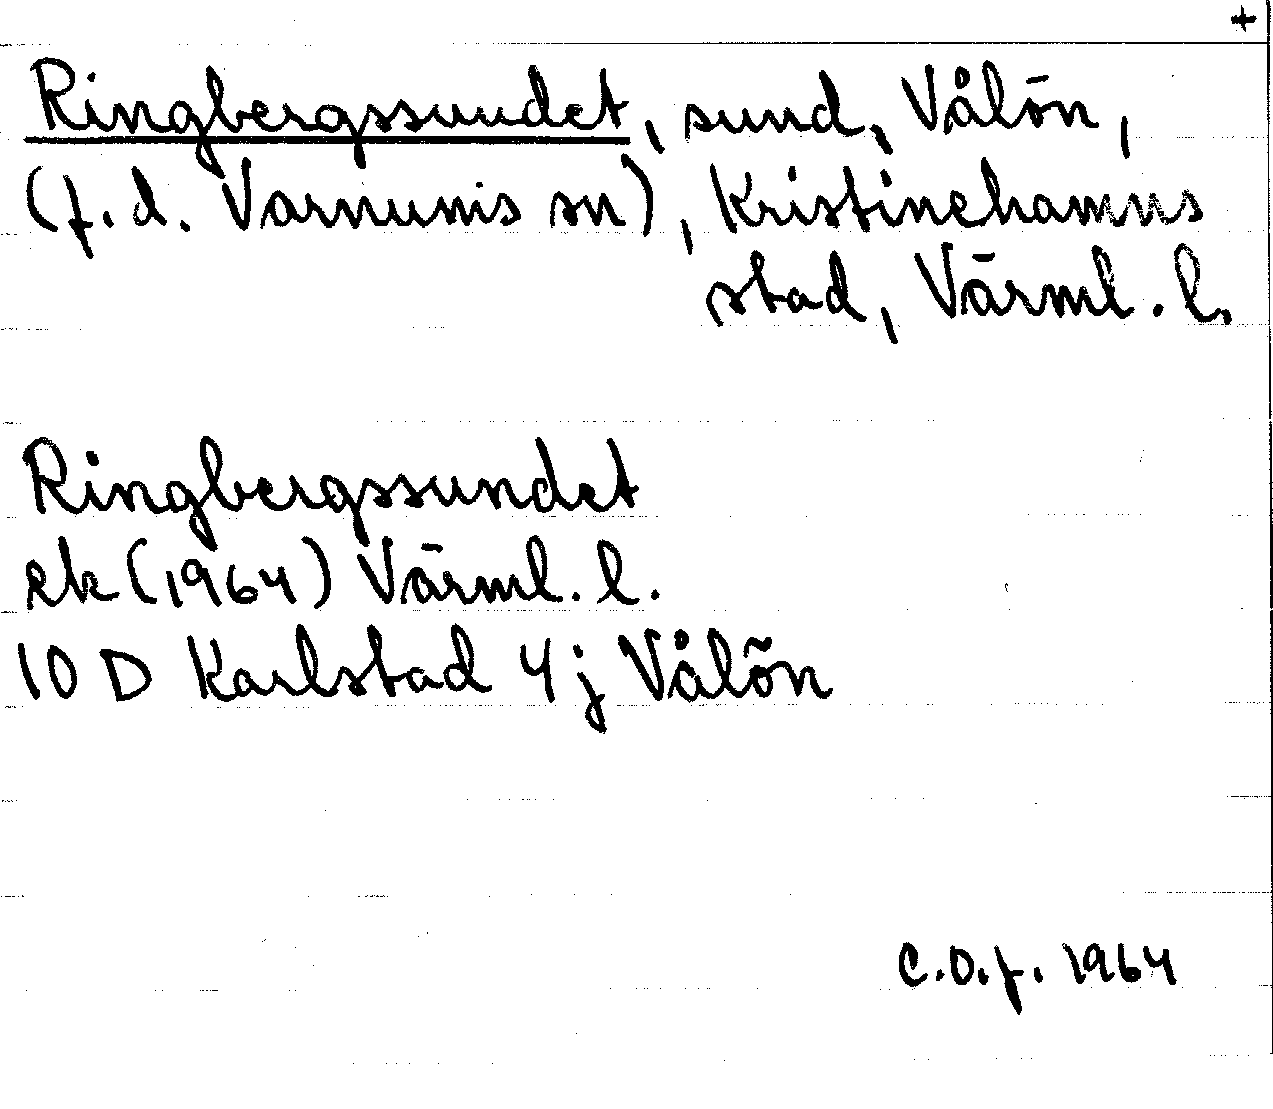 +
Ringbergssundet, sund, Vålön,
(f.d. Varnums sn), Kristinehamns
stad, Värml. l.
Ringbergssundet
ek (1964) Värml. l.
10 D Karlstad 4j Vålön
C.O.f. 1964